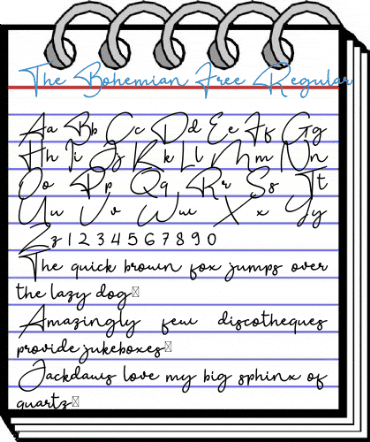 The Bohemian Free Regular
Aa Bb Cc Dd Ee Ff Gg
Hh Ii Jj Kk Ll Mm Nn
Oo Pp Qq Rr Ss Tt
Uu Vv Ww Xx Yy
Zz 1 2 3 4 5 6 7 8 9 0
The quick brown fox jumps over
the lazy dog□
Amazingly few discotheques
provide jukeboxes□
Jackdaws love my big sphinx of
quartz□